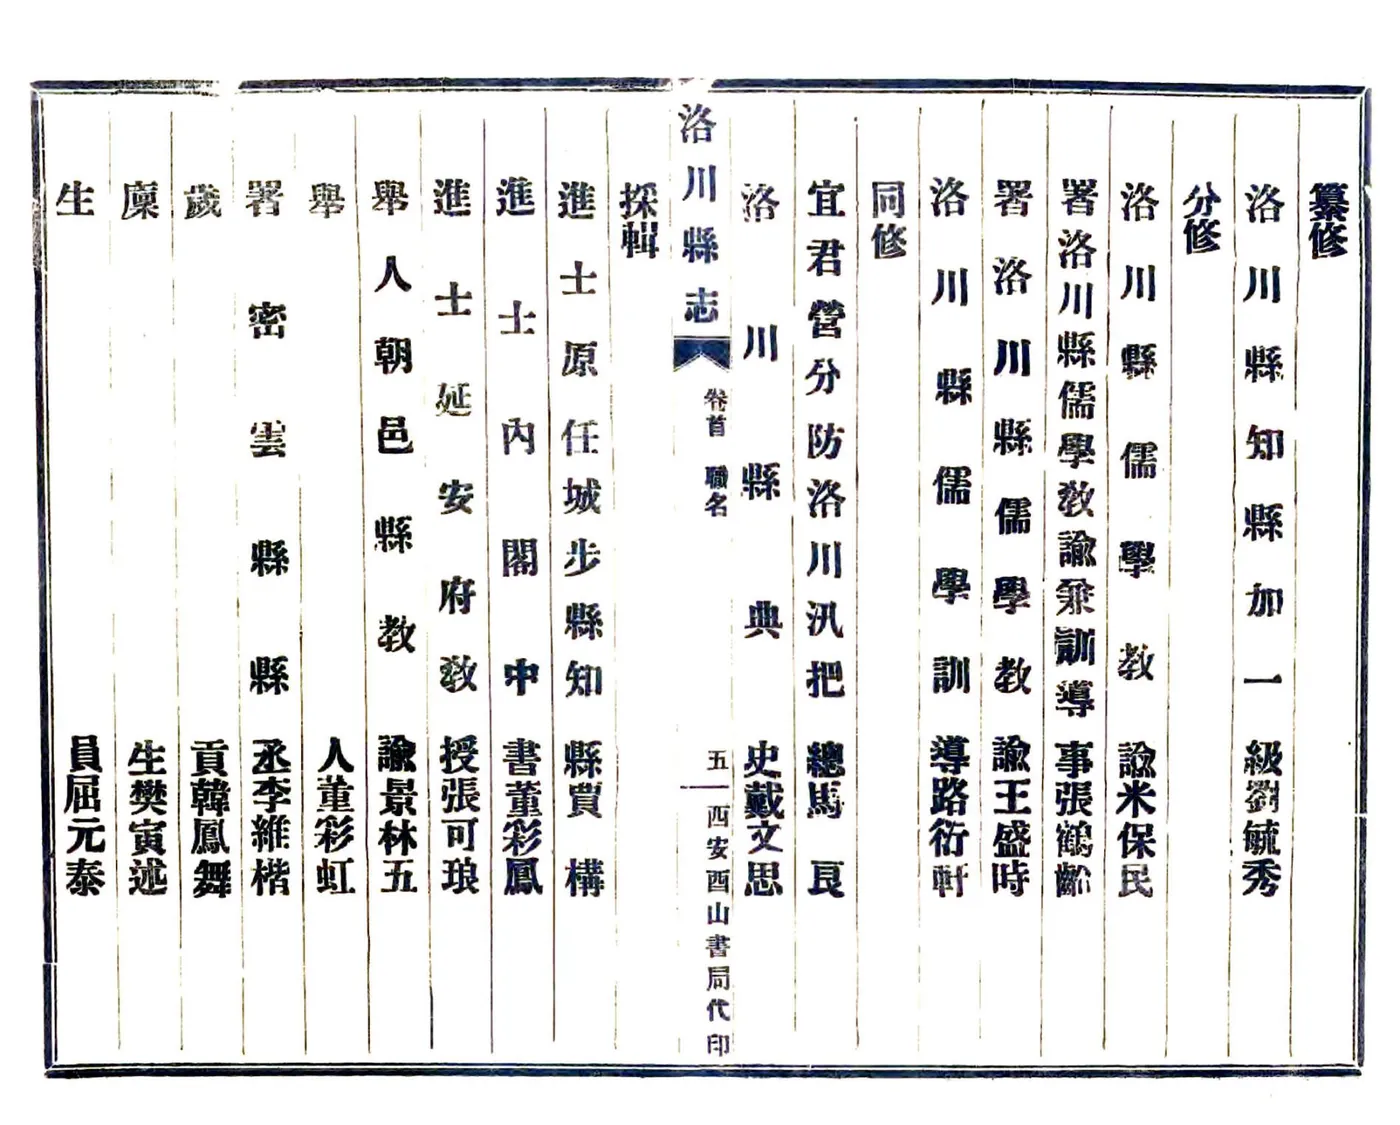 纂修
洛川縣知縣加一級劉毓秀
分修
洛川縣儒學教諭米保民
署洛川縣儒學教諭兼訓導事張鶴齡
署洛川縣儒學教諭王盛時
洛川縣儒學訓導路衍軒
同修
宜君營分防洛川汛把總馬良
洛川縣典史戴文思
洛川縣志
卷首 職名
五
西安酉山書局代印
採輯
進士原任城步縣知縣賈構
進士內閣中書董彩鳳
進士延安府教授張可琅
舉人朝邑縣教諭景林五
舉人董彩虹
署密雲縣縣丞李維楷
歲貢韓鳳舞
廩生樊寅述
生員屈元泰